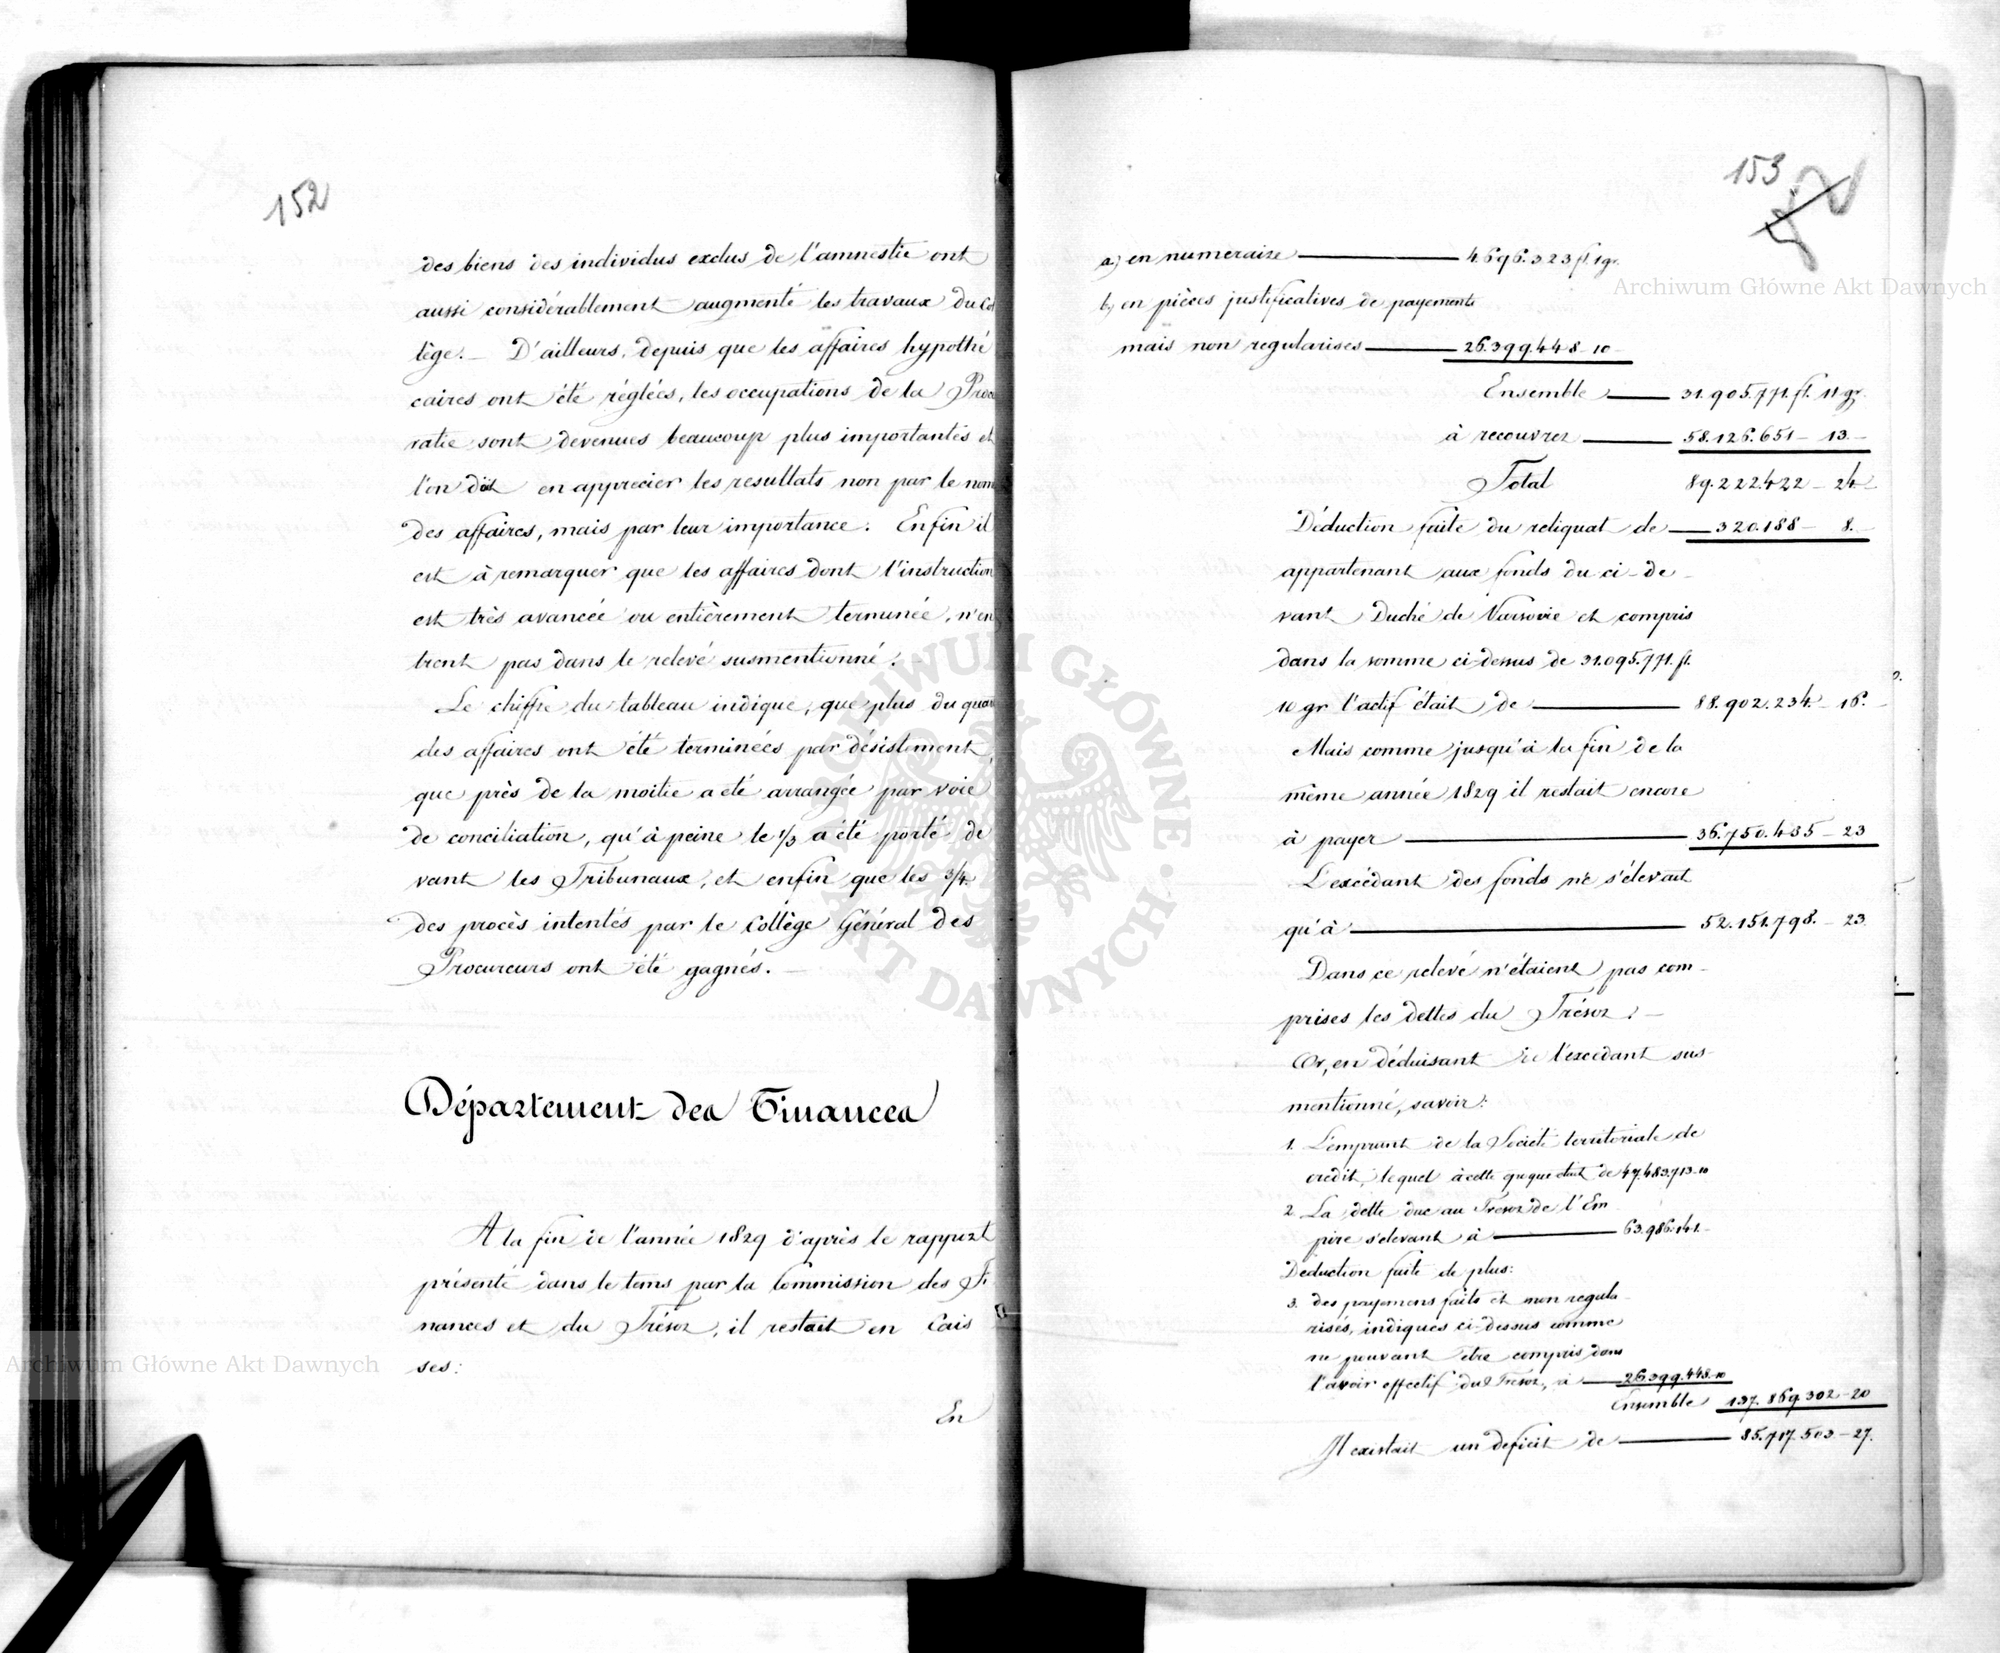 152
des biens des individus exclus de l'amnestie ont
aussi considérablement augmenté les travaux du Col
lège. — D'ailleurs, depuis que les affaires hypothé
caires ont été réglées, les occupations de la Procu
ratie sont devenues beaucoup plus importantes et
l'on doit en apprecier les resultats non par le nom
des affaires, mais par leur importance. Enfin il
est à remarquer que les affaires dont l'instruction
est très avancée ou entièrement terminée, n'en
trent pas dans le relevé susmentionné.
Le chiffre du tableau indique, que plus du quart
des affaires ont été terminées par désistement,
que près de la moitie a été arrangée par voie
de conciliation, qu'à peine le 1/3 a été porté de
vant les Tribunaux, et enfin que les 3/4
des procès intentés par le Collège Général des
Procureurs ont été gagnés. —
Département des Finances
A la fin de l'année 1829 d'après le rapport
présenté dans le tems par la Commission des Fi
nances et du Trésor, il restait en Cais
ses:
En
153
a) en numeraire — 4.696.323 fl. 1 gr.
b) en pièces justificatives de payements
mais non regularises — 26.399.448 - 10
Ensemble — 31.905.771. fl. 11 gr.
à recouvrer — 58.126.651 — 13. —
Total 89.222.422 — 24
Déduction faite du reliquat de — 320.188 — 8. —
appartenant aux fonds du ci-de-
vant Duché de Varsovie et compris
dans la somme ci dessus de 31.095.771. fl.
10 gr l'actif était de — 88.902.234 — 16.
Mais comme jusqu'à la fin de la
même année 1829 il restait encore
à payer — 36.750.435 — 23
L'excédant des fonds ne s'élevait
qu'à — 52.151.798. — 23
Dans ce relevé n'étaient pas com-
prises les dettes du Trésor. —
Or, en déduisant de l'excedant sus-
mentionné, savoir:
1. L'emprunt de la Societé territoriale de
credit, lequel à cette epoque était de 47.483.713-10
2. La dette due au Tresor de l'Em
pire s'elevant à — 63.986.141. —
Deduction faite de plus:
3. des payemens faits et non regula-
risés, indiqués ci-dessus comme
ne pouvant etre compris dans
l'avoir effectif du Trésor, à — 26.399.448-10
Ensemble 137.869.302-20
Il existait un deficit de — 85.717.503-27.
Archiwum Główne Akt Dawnych
Archiwum Główne Akt Dawnych
ARCHIWUM GŁÓWNE · AKT DAWNYCH ·